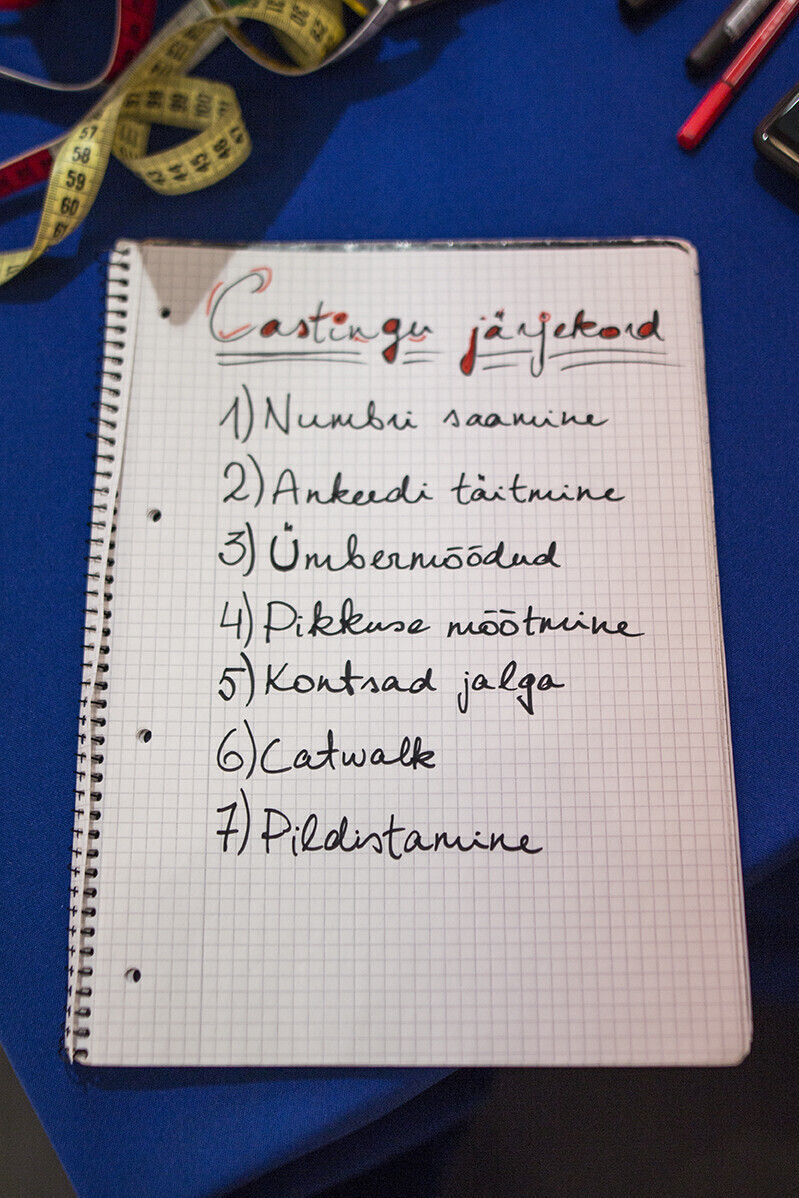 Castingu järjekord
1) Numbri saamine
2) Ankeedi täitmine
3) Ümbermõõdud
4) Pikkuse mõõtmine
5) Kontsad jalga
6) Catwalk
7) Pildistamine
57
58
59
60
61
98
99
100
43
44
45
46
47